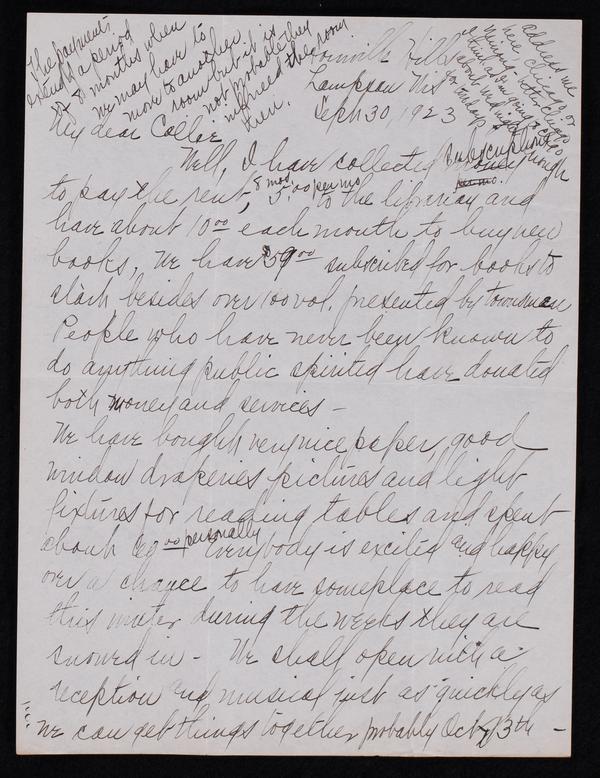 The payments
extend a period
of 8 months when
we may have to
move to another
room but it is
not probable they
will need the room
then.
address me
here
Hills
Lampson Wis
Sept 30, 1923
My dear Collie,
Well, I have collected subscription
money enough
to pay the rent, 8 mos 5.00 per mo. to the library and
have about 10 00 each month to buy new
books, We have $59 00 subscribed for books to
start besides over 100 vol. presented by townsmen
People who have never been known to
do anything public spirited have donated
both money and services –
We have bought very nice paper, good
window draperies pictures and light
fixtures for reading tables and spent
about 60 00 personally Everybody is excited and happy
over a chance to have someplace to read
this winter during the weeks they are
snowed in – We shall open with a
reception and musical just as quickly as
we can get things together probably Oct 13th –